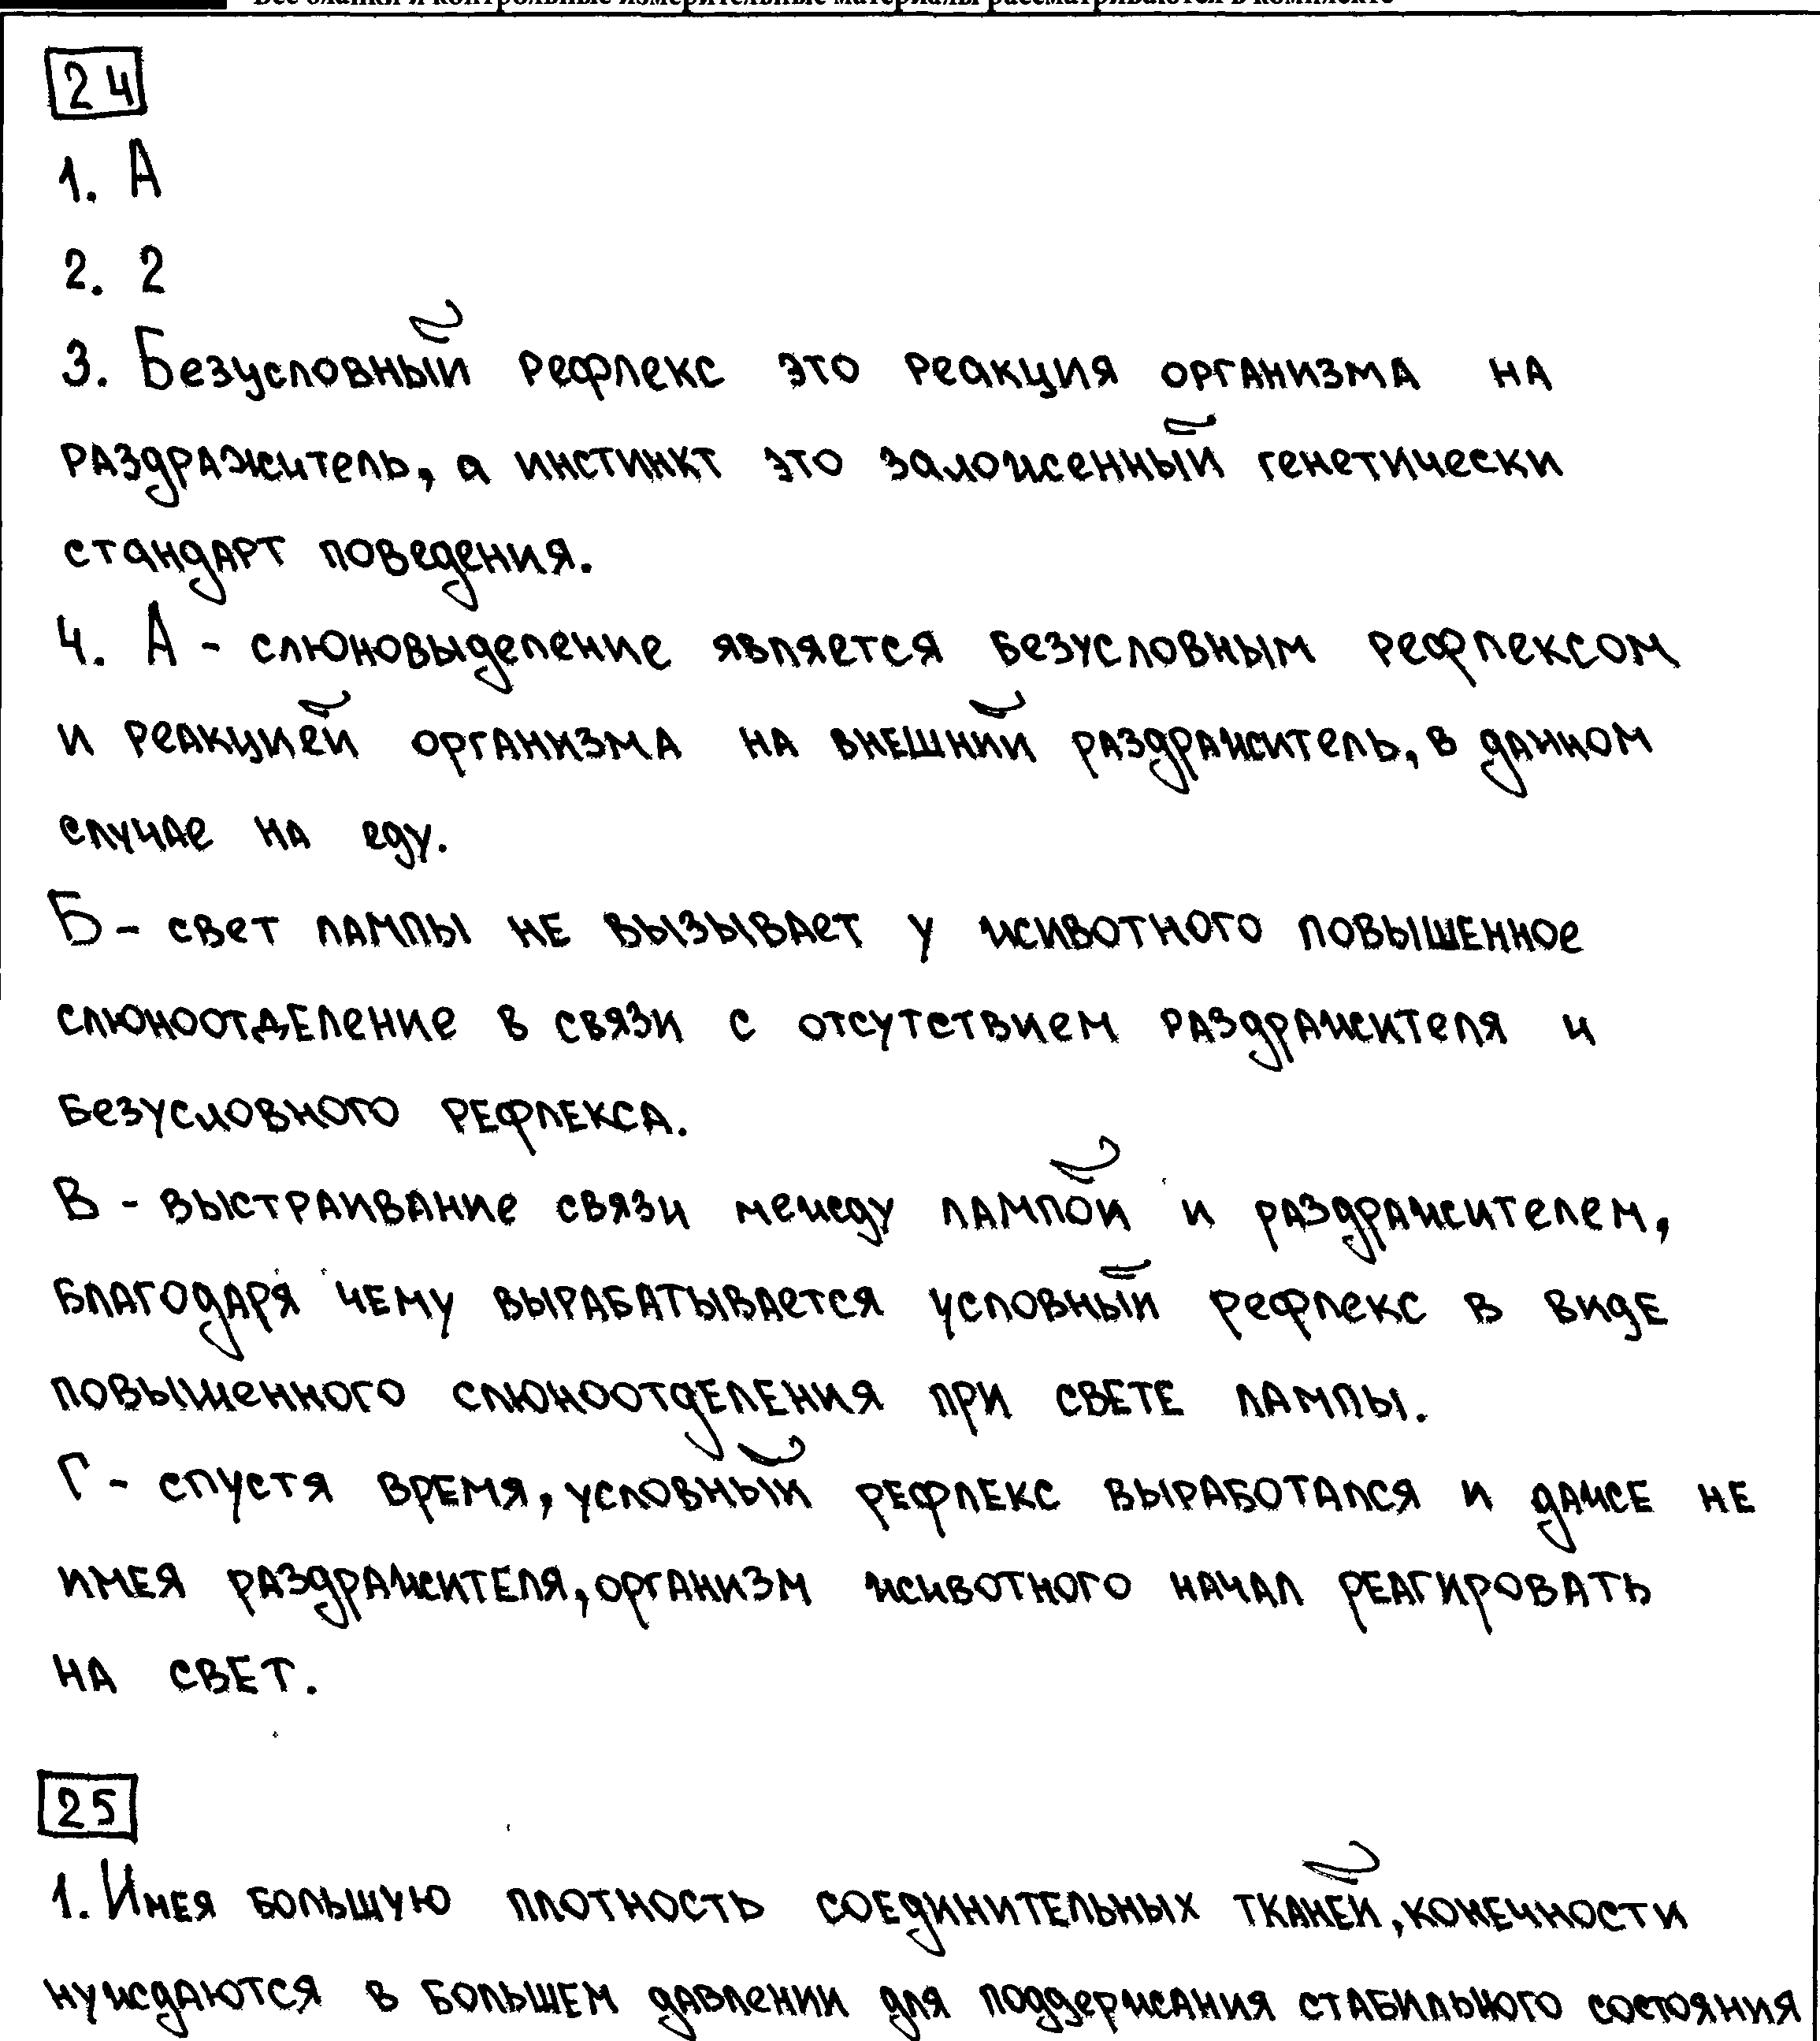 Все бланки и контрольные измерительные материалы рассматриваются в комплекте
24
1. А
2. 2
3. Безусловный рефлекс это реакция организма на
раздражитель, а инстинкт это заложенный генетически
стандарт поведения.
4. А - слюновыделение является безусловным рефлексом
и реакцией организма на внешний раздражитель, в данном
случае на еду.
Б - свет лампы не вызывает у животного повышенное
слюноотделение в связи с отсутствием раздражителя и
безусловного рефлекса.
В - выстраивание связи между лампой и раздражителем,
благодаря чему вырабатывается условный рефлекс в виде
повышенного слюноотделения при свете лампы.
Г - спустя время, условный рефлекс выработался и даже не
имея раздражителя, организм животного начал реагировать
на свет.
25
1. Имея большую плотность соединительных тканей, конечности
нуждаются в большем давлении для поддержания стабильного состояния